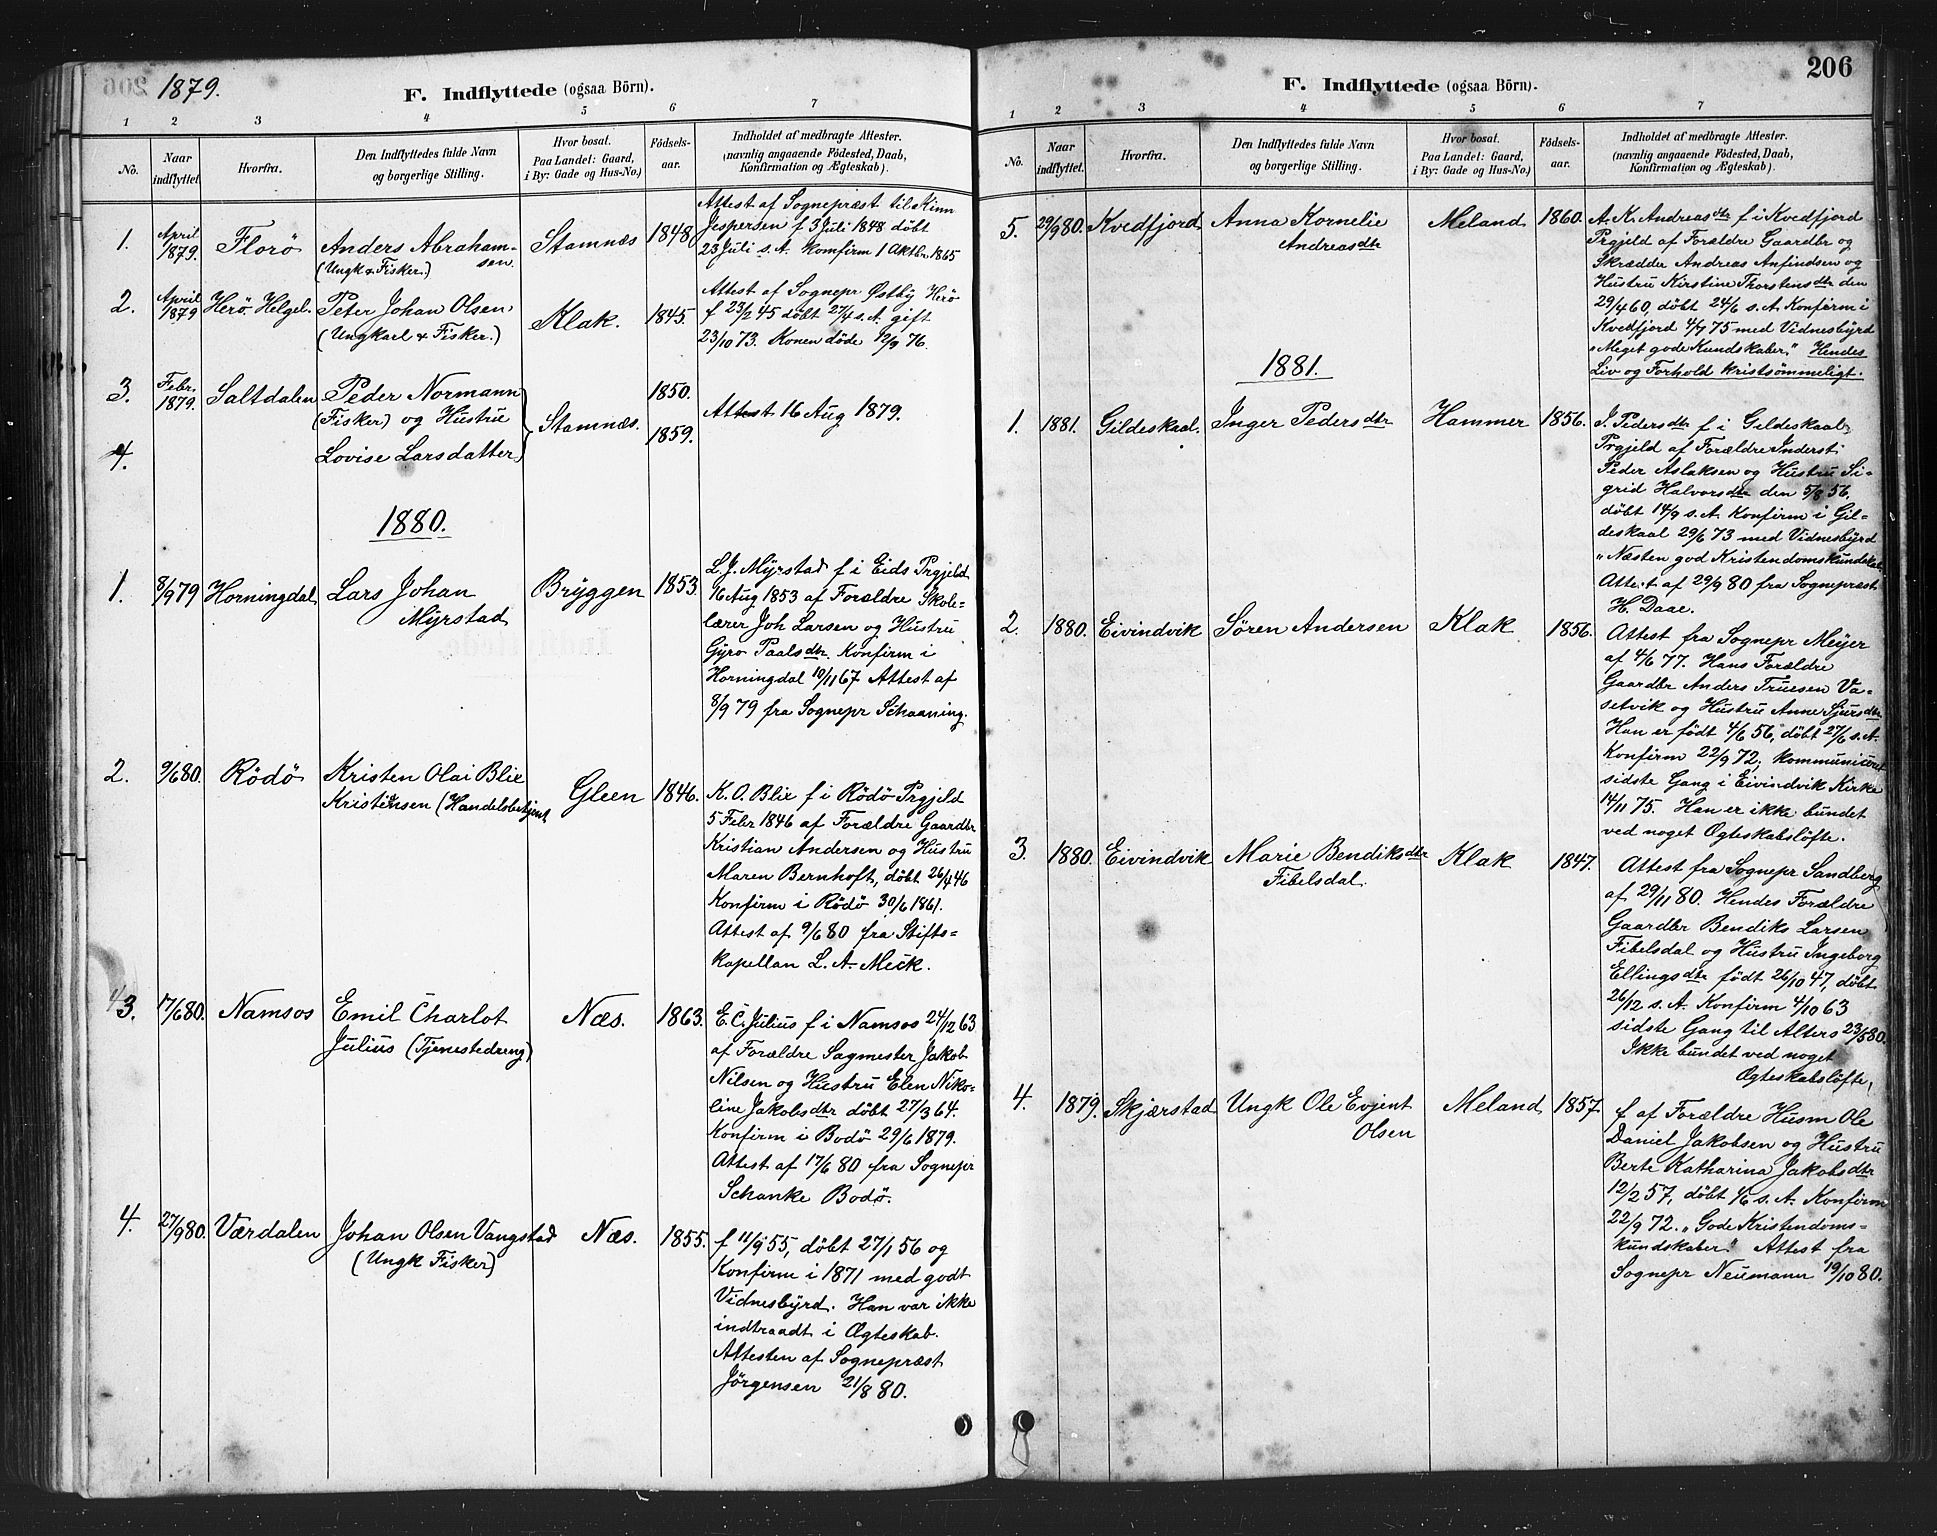 1879.
F. Indflyttede (ogsaa Börn).
1 2 3 4 5 6 7
No.
Naar indflyttet.
Hvorfra.
Den Indflyttedes fulde Navn
og borgerlige Stilling.
Hvor bosat.
Paa Landet: Gaard,
i By: Gade og Hus-No.)
Födsels-
aar.
Indholdet af medbragte Attester.
(navnlig angaaende Födested, Daab,
Konfirmation og Ægteskab).
1. April 1879. Florö Anders Abraham-
sen.
(Ungk & Fisker.)
Stamnæs 1848
Attest af Sognepræst til Kinn
Jespersen f 3 Juli 1848 döbt
23 Juli s. A. komfirm 1 Aktbr 1865
2. April 1879 Herö. Helgel. Peter Johan Olsen,
(Ungkarl & Fisker.)
Klak. 1845.
Attest af Sognepr Østby Herö
f 23/2 45 döbt 27/4 s. A. gift
23/10 73. Konen döde 12/9 76.
3. Febr. 1879. Saltdalen Peder Normann
(Fisker) og Hustru
4. Lovise Larsdatter
Stamnæs. 1850.
1859.
Attest 16 Aug 1879.
1880.
1. 8/9 79 Horningdal Lars Johan
Myrstad
Bryggen 1853.
L. J. Myrstad f i Eids Prgjeld
16 Aug 1853 af Forældre Skole-
lærer Joh Larsen og Hustru
Gyro Paalsdtr. Konfirm i
Horningdal 10/11 67 Attest af
8/9 79 fra Sognepr Schaaning.
2. 9/6 80. Rödö Kristen Olai Blix
Kristensen (Handelsbetjent
Gleen 1846.
K. O. Blix f i Rödö Prgjeld
5 Febr 1846 af Forældre Gaardbr
Kristian Andersen og Hustru
Maren Bernhoft, döbt 26/4 46
Konfirm i Rödö 30/6 1861.
Attest af 9/6 80 fra Stifts-
kapellan L. A. Meck.
3. 17/6 80. Namsos Emil Charlot
Julius (Tjenestedreng)
Næs. 1863.
E. C. Julius f i Namsos 24/12 63
af Forældre Sagmester Jakob
Nilsen og Hustru Elen Niko-
line Jakobsdtr döbt 27/3 64.
Konfirm i Bodö 29/6 1879.
Attest af 17/6 80 fra Sognepr
Schanke Bodö.
4. 27/9 80. Værdalen Johan Olsen Vangstad
(Ungk Fisker)
Næs. 1855.
f 11/9 55, döbt 27/1 56 og
Konfirm i 1871 med godt
Vidnesbyrd. Han var ikke
indtraadt i Ægteskab.
Attesten af Sognepræst
Jörgensen 21/8 80.
206
F. Indflyttede (ogsaa Börn).
1 2 3 4 5 6 7
No.
Naar indflyttet.
Hvorfra.
Den Indflyttedes fulde Navn
og borgerlige Stilling.
Hvor bosat.
Paa Landet: Gaard,
i By: Gade og Hus-No.)
Födsels-
aar.
Indholdet af medbragte Attester.
(navnlig angaaende Födested, Daab,
Konfirmation og Ægteskab).
5. 29/9 80. Kvedfjord Anna Kornelie
Andreasdtr
Meland 1860.
A. K. Andreasdtr f i Kvedfjord
Prgjeld af Forældre Gaardbr og
Skrædder Andreas Anfindsen og
Hustru Kirstine Thorstensdtr den
29/4 60, döbt 24/6 s. A. Konfirm i
Kvedfjord 4/7 75 med Vidnesbyrd
„Meget gode Kundskaber." Hendes
Liv og Forhold kristsömmeligt.
1881.
1. 1881. Gildeskaal. Inger Pedersdtr Hammer 1856.
I. Pedersdtr f i Gildeskaal
Prgjeld af Forældre Inderst
Peder Aslaksen og Hustru Si-
grid Halvorsdtr den 5/8 56,
döbt 14/9 s. A. Konfirm i Gil-
deskaal 29/6 73 med Vidnesbyrd
„Næsten god Kristendomskundskab.
Attest af 29/9 80 fra Sognepræst
H. Daae.
2. 1880. Eivindvik Sören Andersen Klak 1856.
Attest fra Sognepr Meyer
af 4/6 77. Hans Forældre
Gaardbr Anders Truesen Va-
setvik og Hustru Anne Sjursdtr
Han er födt 4/6 56, döbt 27/6 s. A.
Konfirm 22/9 72, kommuniceret
sidste Gang i Eivindvik Kirke
14/11 75. Han er ikke bundet
ved noget Ægteskabslöfte.
3. 1880. Eivindvik Marie Bendiksdtr
Fibelsdal.
Klak 1847.
Attest fra Sognepr Sandberg
af 29/11 80. Hendes Forældre
Gaardbr Bendiks Larsen
Fibelsdal og Hustru Ingeborg
Ellingsdtr födt 26/10 47, döbt
26/12 s. A. Konfirm 4/10 63
sidste Gang til Alters 23/5 80.
Ikke bundet ved noget
Ægteskabslöfte,
4. 1879. Skjærstad Ungk Ole Evjent
Olsen
Meland 1857
f af Forældre Husm Ole
Daniel Jakobsen og Hustru
Berte Katharina Jakobsdtr
12/2 57, döbt s. A. Konfirm
22/9 72. „Gode Kristendoms-
kundskaber." Attest fra
Sognepr Neumann 19/10 80.